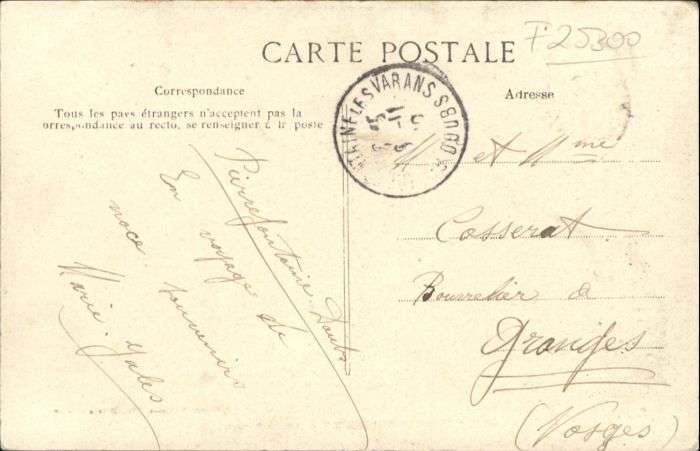 F 25300
CARTE POSTALE
Correspondance
Tous les pays étrangers n'acceptent pas la
orrespondance au recto, se renseigner à lr poste
Pierrefontaine Doubs
En voyage de
noce. souvenirs
Marie. Jales
Adresse
M et Mme
Cosserat
Bourrelier à
Granges
(Vosges)
LES VARANS DOUBS